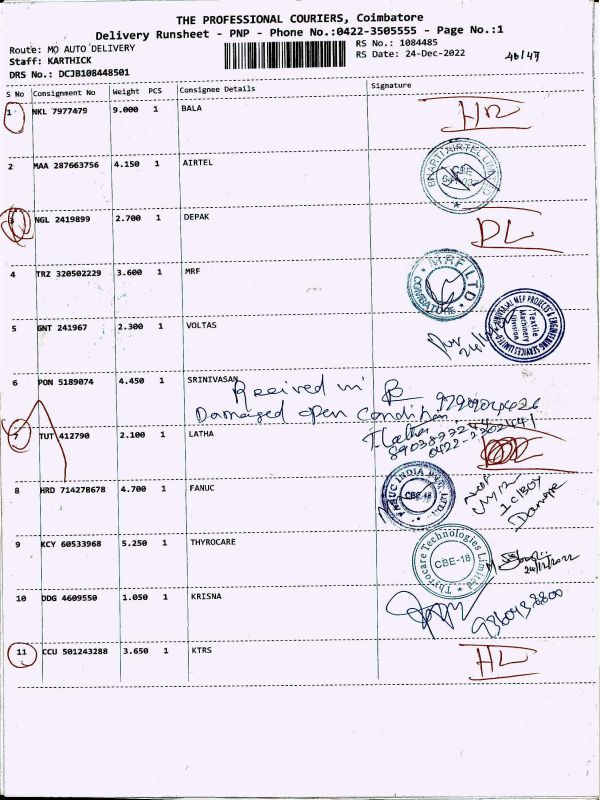 THE PROFESSIONAL COURIERS, Coimbatore
Delivery Runsheet - PNP - Phone No.:0422-3505555 - Page No.:1
Route: MO AUTO DELIVERY
RS No.: 1084485
Staff: KARTHICK
RS Date: 24-Dec-2022
46/47
DRS No.: DCJB108448501
S No Consignment No Weight PCS Consignee Details Signature
1 NKL 7977479 9.000 1 BALA
2 MAA 287663756 4.150 1 AIRTEL
BHARTI AIRTEL LIMITED
CBE
3 NGL 2419899 2.700 1 DEPAK DL
4 TRZ 320502229 3.600 1 MRF
MRF LTD COIMBATORE
5 GNT 241967 2.300 1 VOLTAS
UNIVERSAL MEP PROJECTS & ENGINEERING SERVICES LIMITED
Textile Machinery Division
6 PON 5189074 4.450 1 SRINIVASAN
Received in
Damaged open Condition
7 TUT 412790 2.100 1 LATHA
Latha
0422-2202441
8 HRD 714278678 4.700 1 FANUC
FANUC INDIA PVT. LTD.
CBE-18
Damage
9 KCY 60533968 5.250 1 THYROCARE
Thyrocare Technologies Limited
CBE-18
24/12/2022
10 DDG 4609550 1.050 1 KRISNA
11 CCU 501243288 3.650 1 KTRS HL